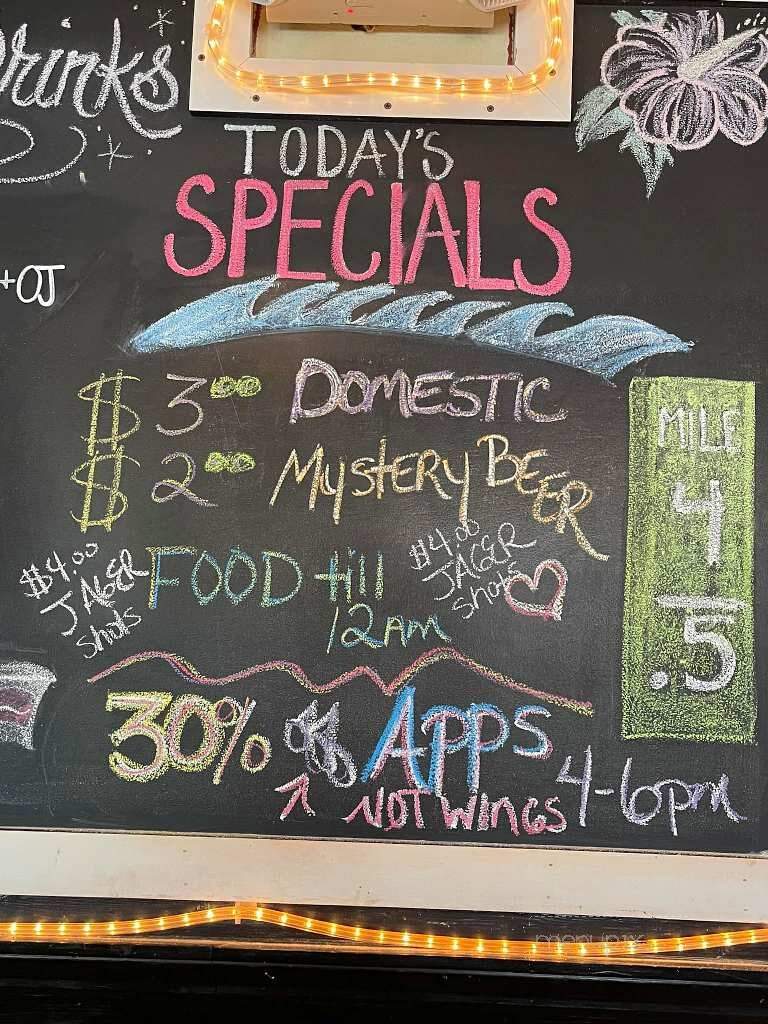 Drinks
TODAY'S
SPECIALS
+OJ
$3.00 DOMESTIC
$2.00 MYSTERY BEER
MILE
4
.5
$4.00
JAGER
shots
FOOD till
12AM
$4.00
JAGER
shots
30% off APPS
NOT WINGS
4-6pm
menupix